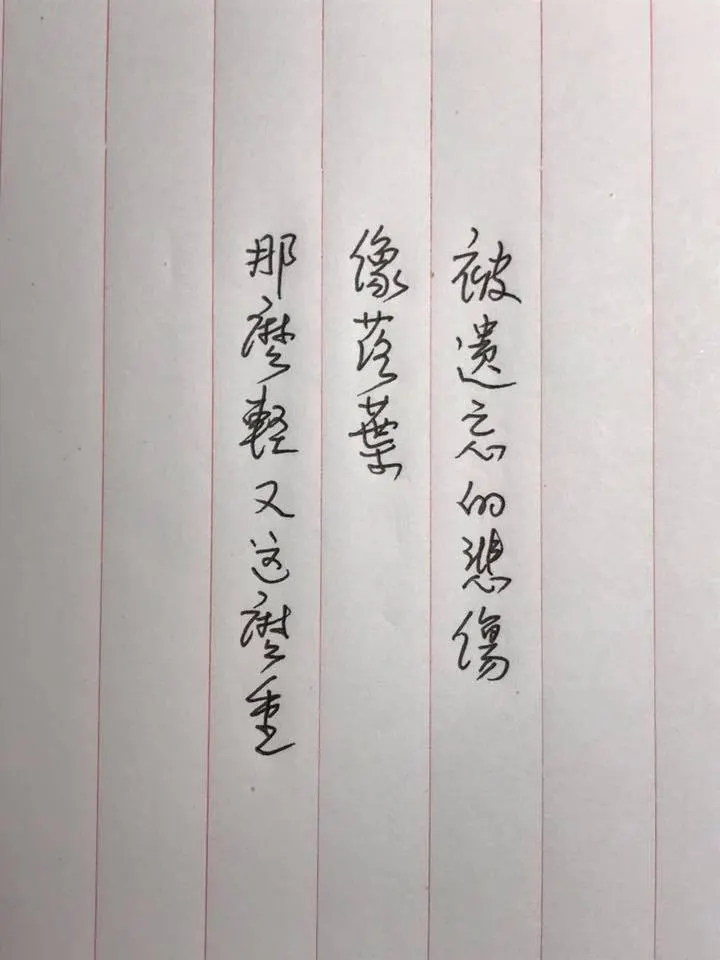 被遺忘的悲傷
像落葉
那麼輕又这麼重